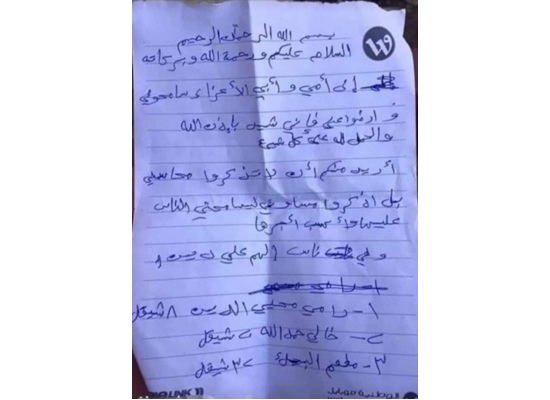 بسم الله الرحمن الرحيم
السلام عليكم ورحمة الله وبركاته
إلى أمي وأبي الأعزاء سامحوني
وادعوا علي فاني شهيد بإذن الله
والحمد لله على كل شيء
أريد منكم أن لا تذكروا محاسني
بل اذكروا مساوئي ليسامحني الناس
عليها وأكسب أجرها
وفي ناس الهم علي دين
١- رامي محيي الدين ٨ شيقل
٢- خالي حمد الله ٢ شيقل
٣- مطعم ٢٣ شيقل
الوطنية موبايل
LINK